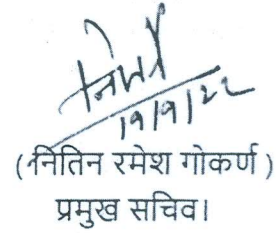 19/9/22
(नितिन रमेश गोकर्ण)
प्रमुख सचिव।